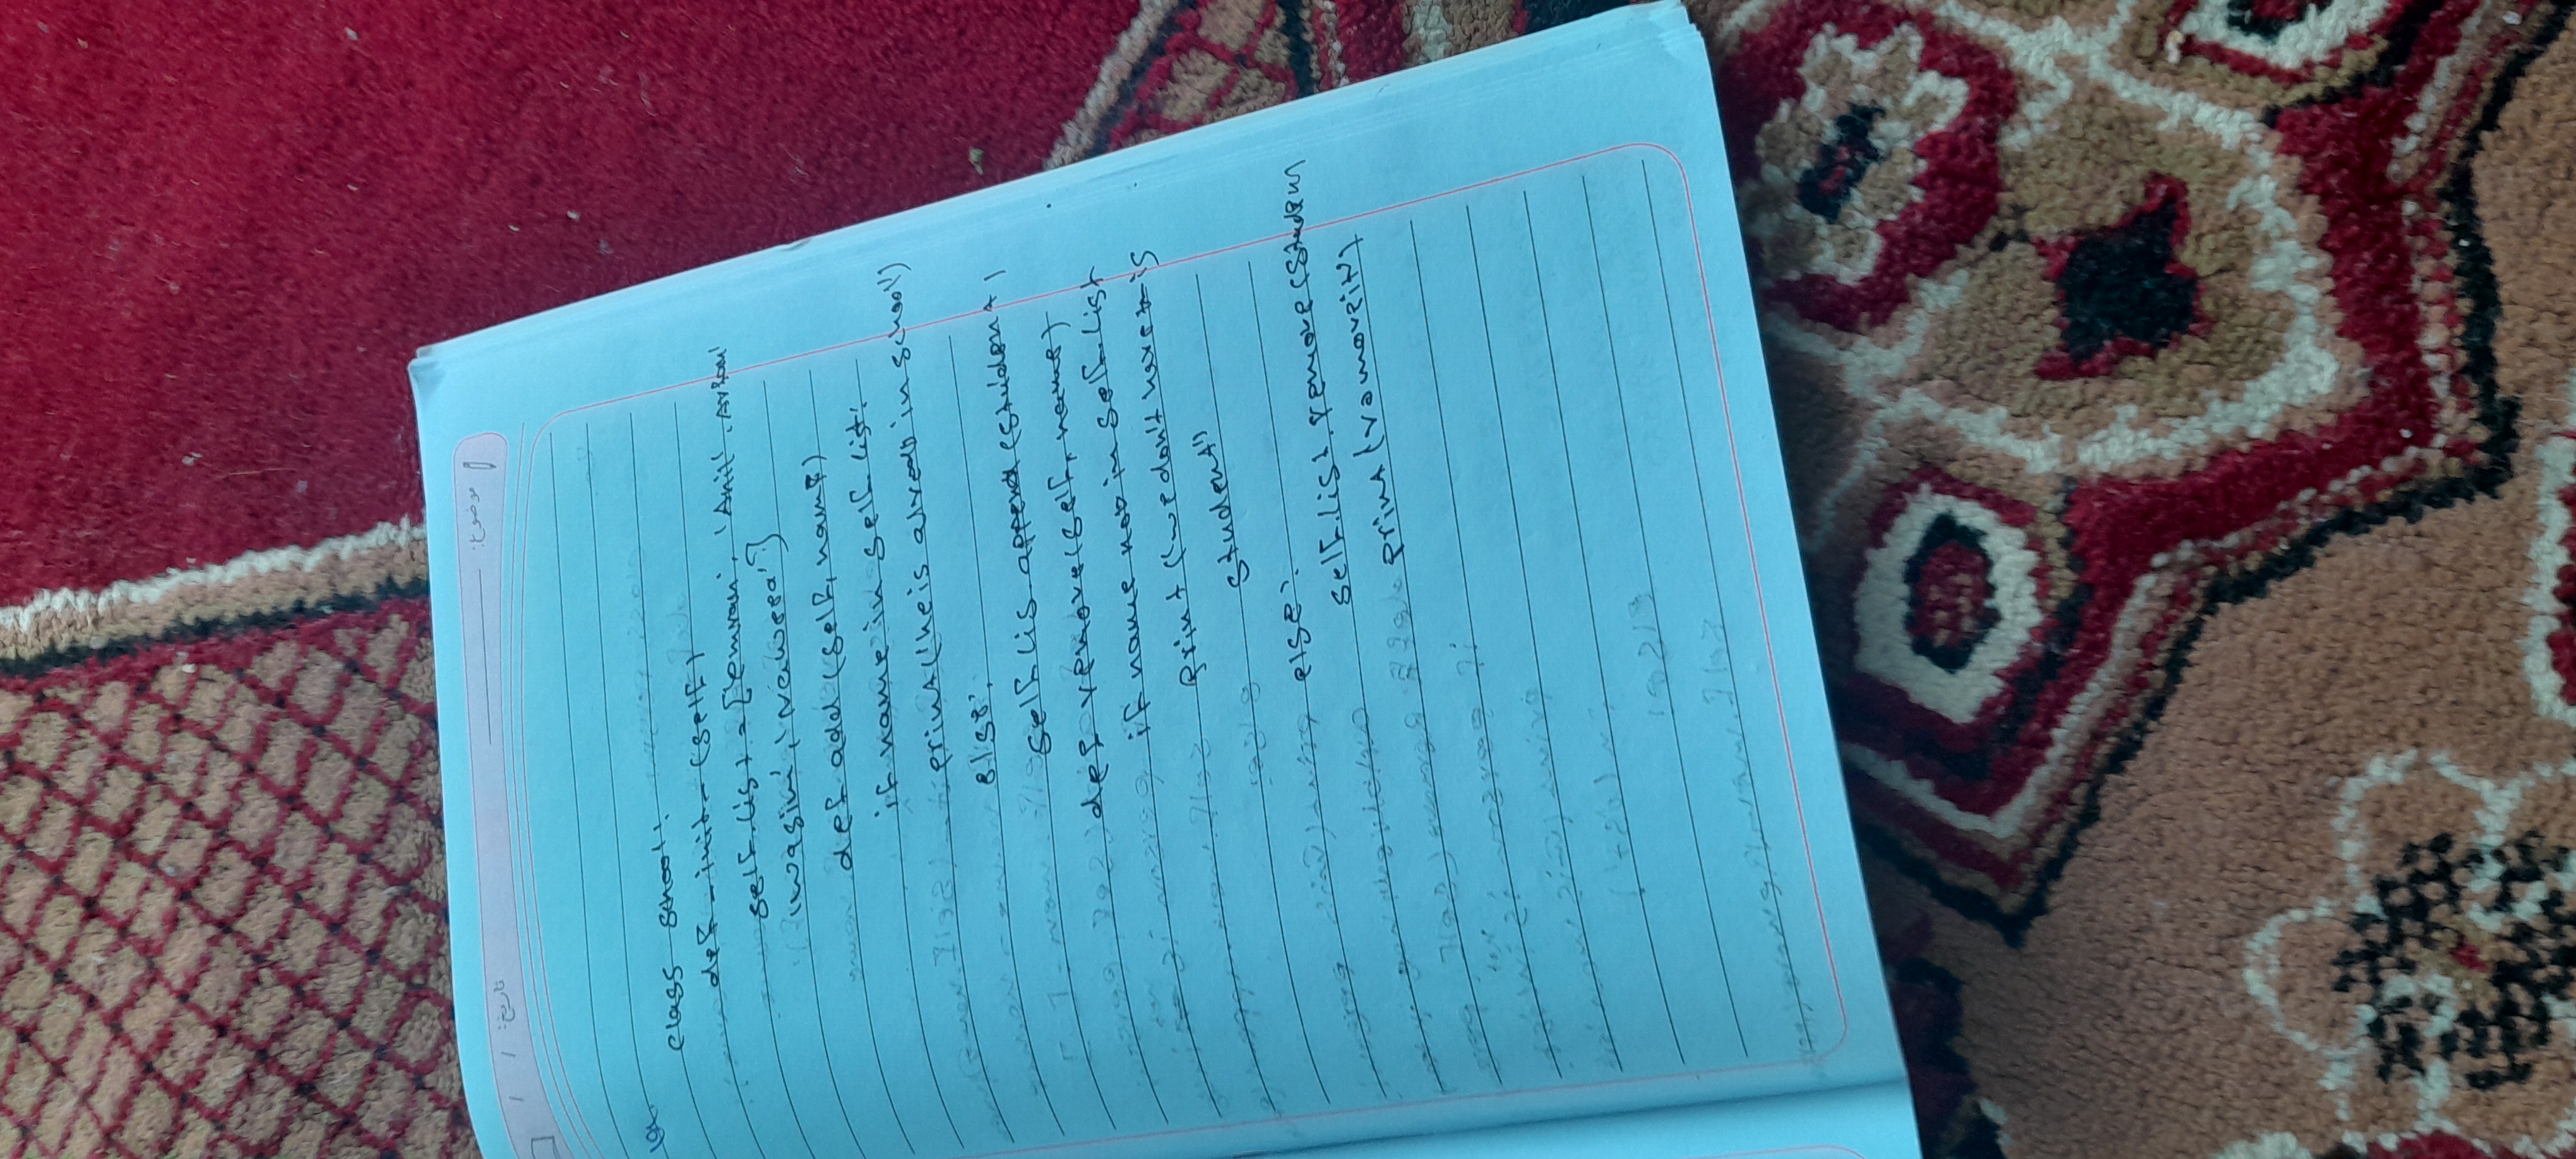 موضوع:
تاريخ: / /
class school:
def _init_ (self)
self.list = ['emran', 'Anil', Arfan'
'wasim', 'Naweea']
def add (self, name)
if name in self list:
print('he is alread in school')
else:
self.lis. append (student,
def remove(self, name)
if name not in self.list
print ('we don't have this
student'')
else:
self.list. remove (studen
print (removeit')